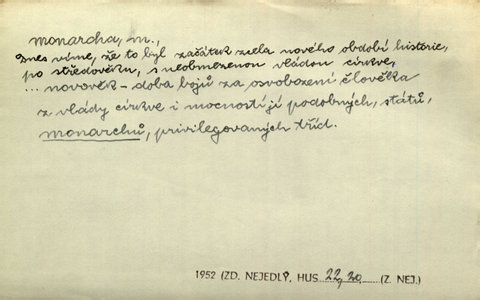 monarcha, m.,
Dnes víme, že to byl začátek zcela nového období historie,
po středověku, s neobmezenou vládou církve,
... novověk – doba bojů za osvobození člověka
z vlády církve i mocností jí podobných, států,
monarchů, privilegovaných tříd.
1952 (ZD. NEJEDLÝ, HUS 22, 20 (Z. NEJ.)